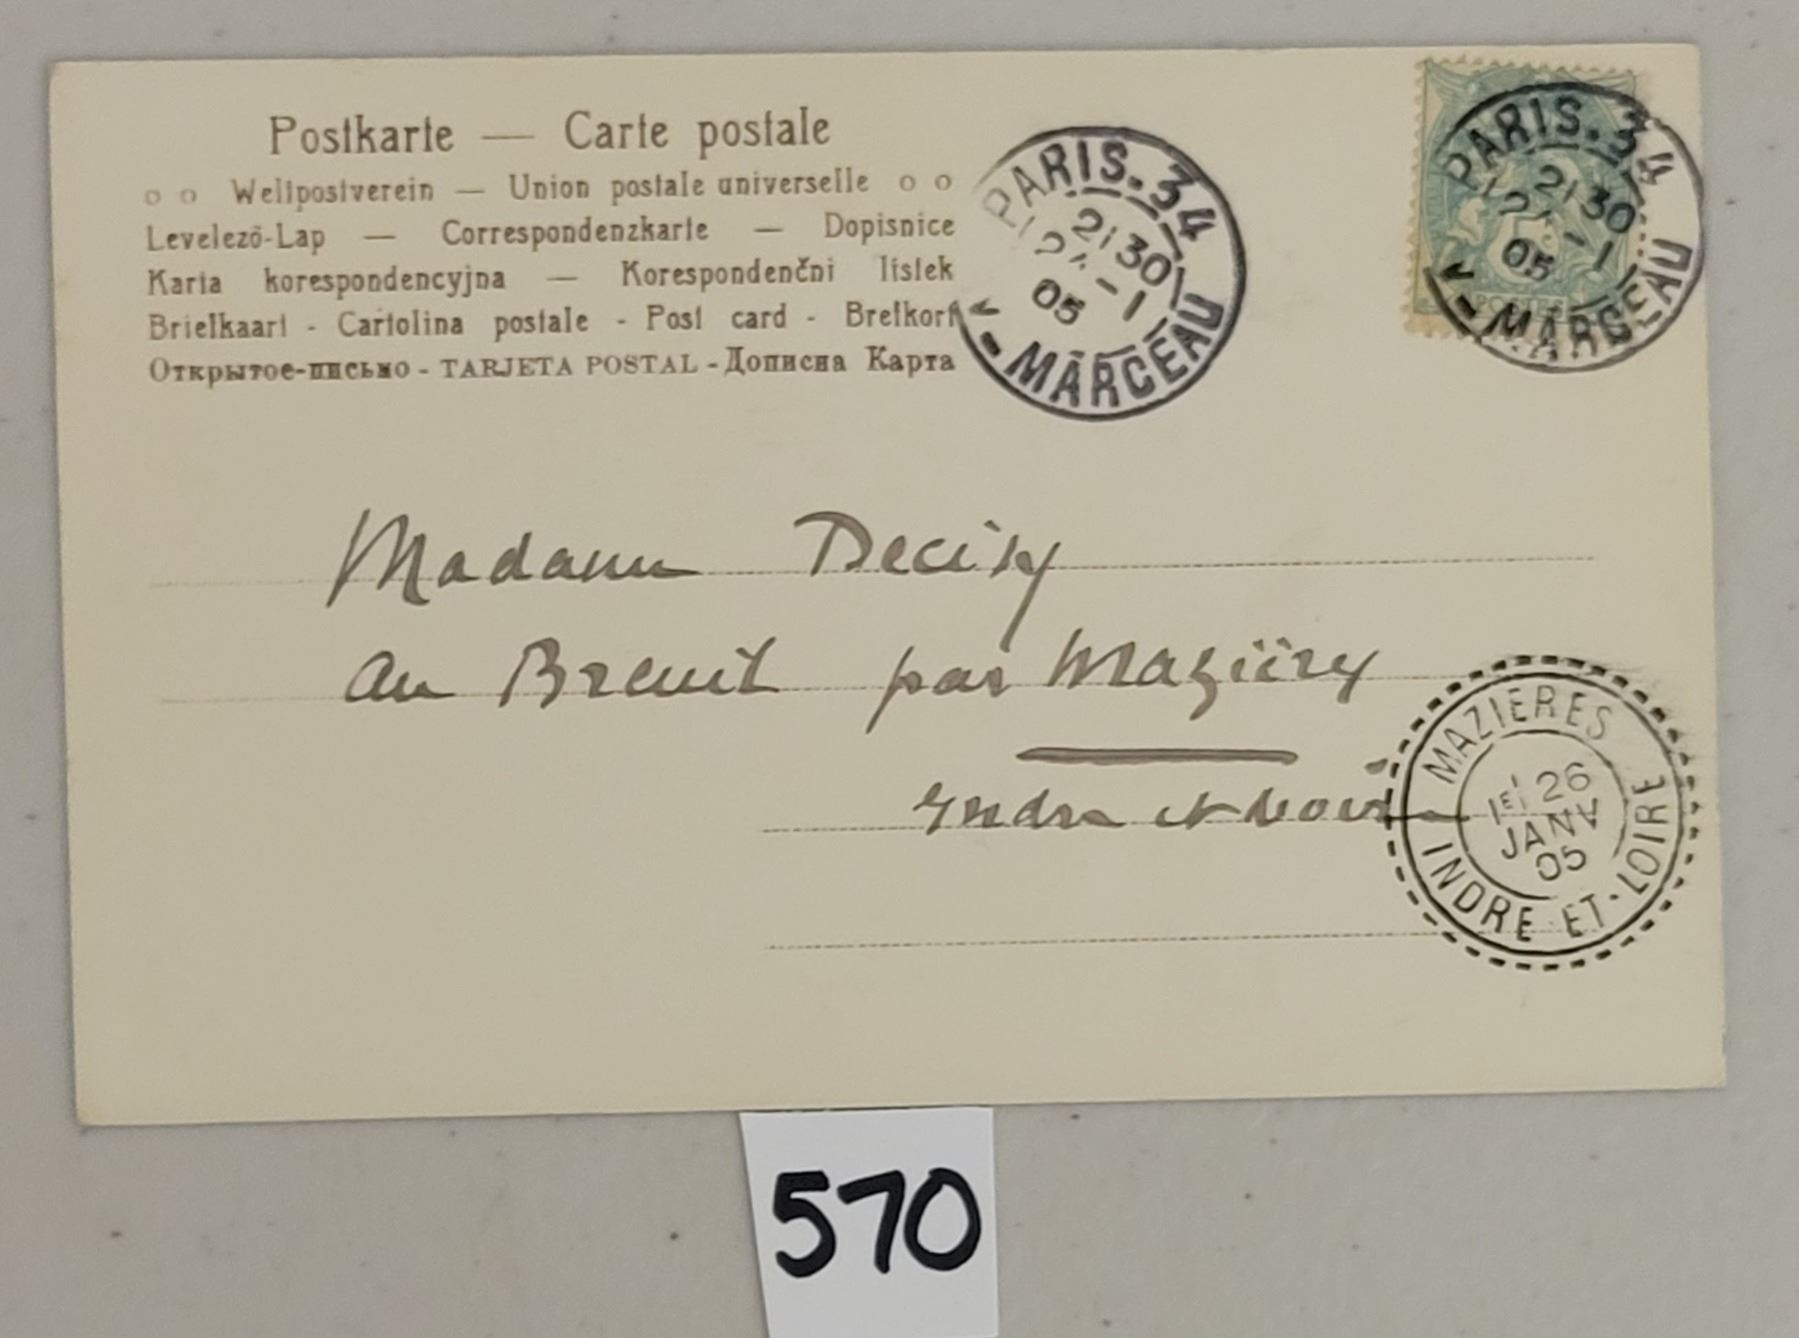 Postkarte — Carte postale
Weltpostverein — Union postale universelle
Levelező-Lap — Correspondenzkarte — Dopisnice
Karta korespondencyjna — Korespondenčni lístek
Briefkaart - Cartolina postale - Post card - Brefkort
Открытое-письмо - TARJETA POSTAL - Дописна Карта
PARIS.34
2130
-1
05
MARCEAU
PARIS.34
2130
-1
05
MARCEAU
5c
POSTES
Madame Decisy
au Breuil par Mazières
Indre et Loire
MAZIERES
1E 26
JANV
05
INDRE-ET-LOIRE
570